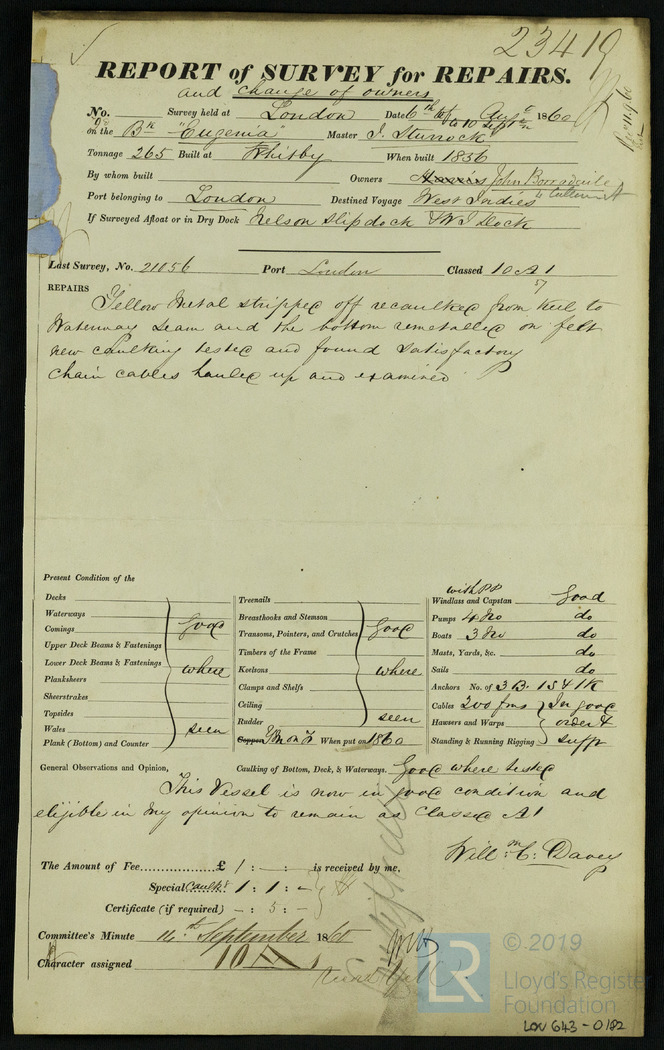 23419
REPORT of SURVEY for REPAIRS.
and change of owners
No. Survey held at London Date 6th Augt 1860
to 10 Septr
on the Bk "Eugenia" Master J. Sturrock
Tonnage 265 Built at Whitby When built 1836
By whom built Owners John Borradaile
Port belonging to London Destined Voyage West Indies
If Surveyed Afloat or in Dry Dock Nelson Slip dock & W I Dock
Last Survey, No. 21056 Port London Classed 10 A 1
57
REPAIRS Yellow Metal stripped off recaulked from Keel to
Waterway Seam and the bottom remetalled on felt
new caulking tested and found satisfactory
Chain cables hauled up and examined
Present Condition of the
Decks
Waterways
Comings
Upper Deck Beams & Fastenings
Lower Deck Beams & Fastenings
Planksheers
Sheerstrakes
Topsides
Wales
Plank (Bottom) and Counter
good
where
seen
Treenails
Breasthooks and Stemson
Transoms, Pointers, and Crutches
Timbers of the Frame
Keelsons
Clamps and Shelfs
Ceiling
Rudder
Copper Y M on F When put on 1860
good
where
seen
with PP
Windlass and Capstan good
Pumps 4 No do
Boats 3 No do
Masts, Yards, &c. do
Sails do
Anchors No. of 3 B. 1 S 4 1 K
Cables 200 fms In good
Hawsers and Warps order &
Standing & Running Rigging sufft
General Observations and Opinion, Caulking of Bottom, Deck, & Waterways. Good where tested
This Vessel is now in good condition and
eligible in my opinion to remain as Classed A1
Willm. C. Davey
The Amount of Fee £ 1 : - : - is received by me,
Special Caulkg 1 : 1 : -
Certificate (if required) - : 5 : -
Committee's Minute 14th September 1860
Character assigned 10 A 1
LR
© 2019
Lloyd's Register
Foundation
LON 643 - 0182